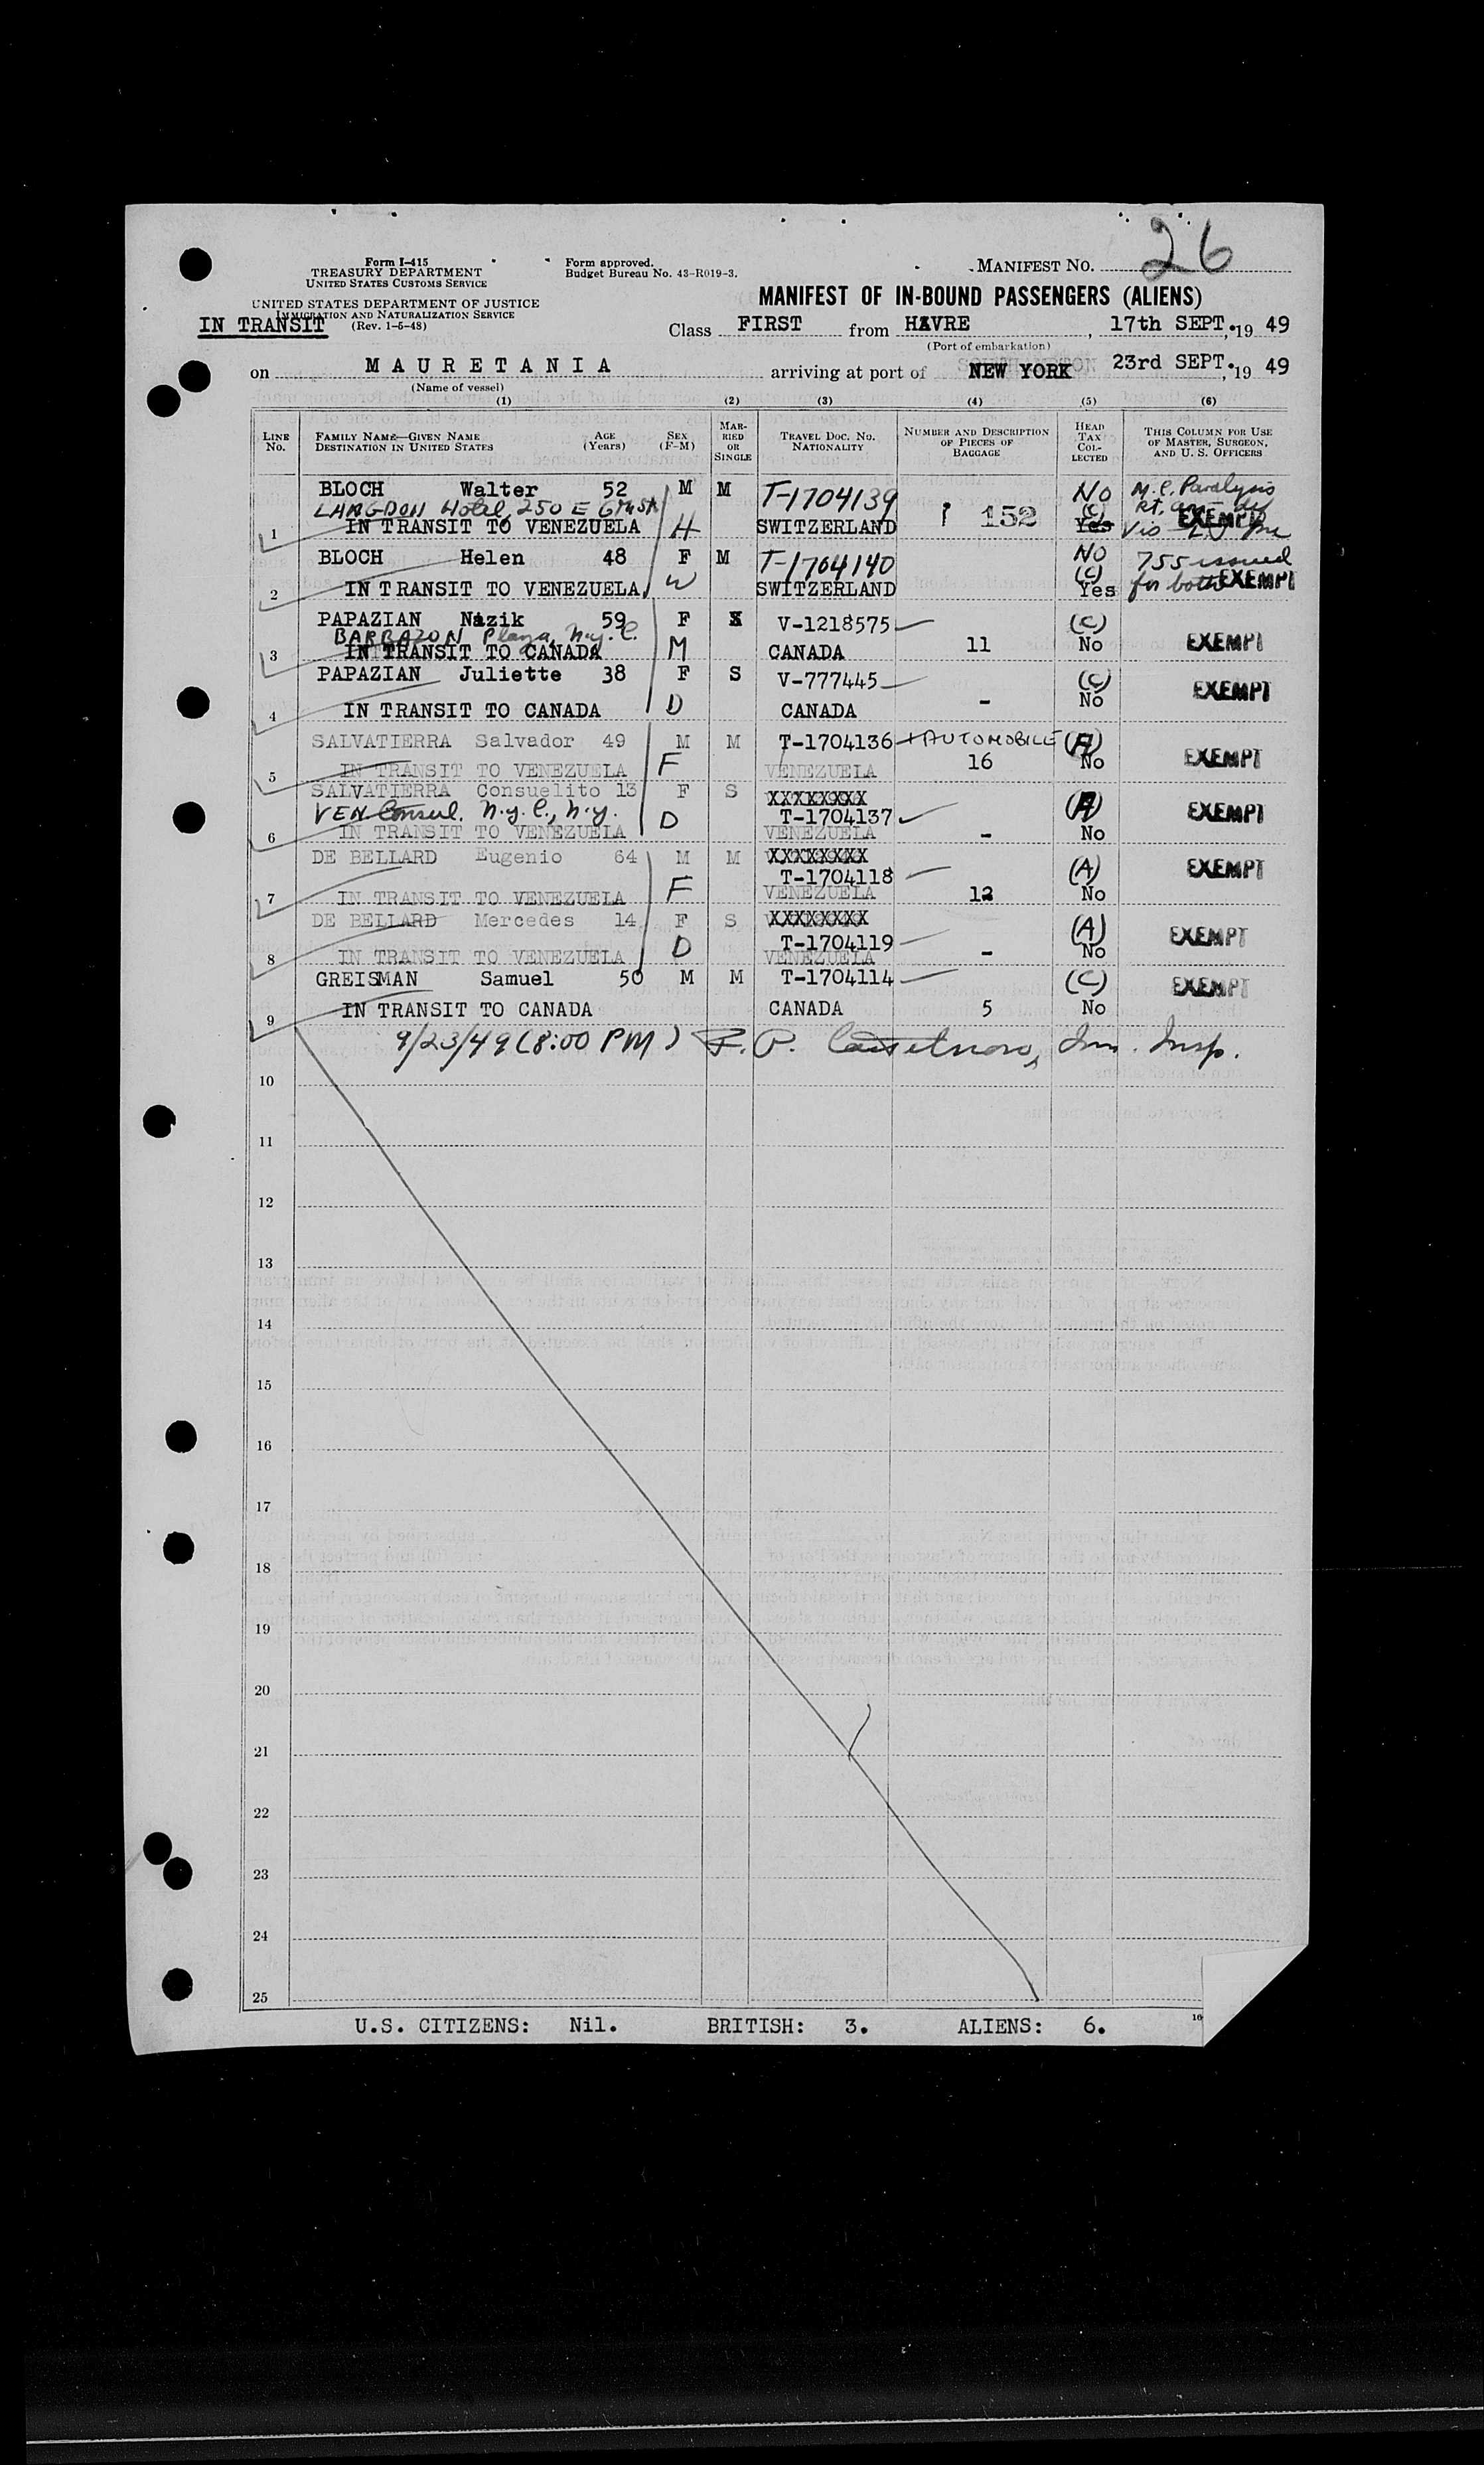 26
Form I-415
TREASURY DEPARTMENT
UNITED STATES CUSTOMS SERVICE
Form approved.
Budget Bureau No. 43-R019-3.
MANIFEST NO.
UNITED STATES DEPARTMENT OF JUSTICE
IMMIGRATION AND NATURALIZATION SERVICE
(Rev. 1-6-48)
IN TRANSIT
MANIFEST OF IN-BOUND PASSENGERS (ALIENS)
Class FIRST from HAVRE, 17th SEPT., 19 49
(Port of embarkation)
on MAURETANIA arriving at port of NEW YORK 23rd SEPT., 19 49
(Name of vessel)
(1) (2) (3) (4) (5) (6)
LINE No. FAMILY NAME—GIVEN NAME DESTINATION IN UNITED STATES AGE (Years) SEX (F-M) MARRIED OR SINGLE TRAVEL DOC. NO. NATIONALITY NUMBER AND DESCRIPTION OF PIECES OF BAGGAGE HEAD TAX COLLECTED THIS COLUMN FOR USE OF MASTER, SURGEON, AND U. S. OFFICERS
BLOCH Walter 52 M M T-1704139 No M.C. Paralysis
LANGDON Hotel, 250 E 152 (C) rt.
1 IN TRANSIT TO VENEZUELA H SWITZERLAND Yes EXEMPT
BLOCH Helen 48 F M T-1704140 No 755 issued
2 IN TRANSIT TO VENEZUELA W SWITZERLAND (C) Yes for both EXEMPT
PAPAZIAN Nazik 59 F V-1218575 (C)
BARBAZON Plaza, N.Y.C.
3 IN TRANSIT TO CANADA M CANADA 11 No EXEMPT
PAPAZIAN Juliette 38 F S V-777445 (C) EXEMPT
4 IN TRANSIT TO CANADA D CANADA - No
SALVATIERRA Salvador 49 M M T-1704136 + AUTOMOBILE (A)
5 IN TRANSIT TO VENEZUELA F VENEZUELA 16 No EXEMPT
SALVATIERRA Consuelito 13 F S XXXXXXXX
VEN Consul, N.Y.C., N.Y. D T-1704137 (A) EXEMPT
6 IN TRANSIT TO VENEZUELA VENEZUELA - No
DE BELLARD Eugenio 64 M M XXXXXXXX
F T-1704118 (A) EXEMPT
7 IN TRANSIT TO VENEZUELA VENEZUELA 12 No
DE BELLARD Mercedes 14 F S XXXXXXXX
D T-1704119 (A) EXEMPT
8 IN TRANSIT TO VENEZUELA VENEZUELA - No
GREISMAN Samuel 50 M M T-1704114 (C) EXEMPT
9 IN TRANSIT TO CANADA CANADA 5 No
9/23/49 (8:00 PM) Im. Insp.
10
11
12
13
14
15
16
17
18
19
20
21
22
23
24
25
U.S. CITIZENS: Nil. BRITISH: 3. ALIENS: 6.